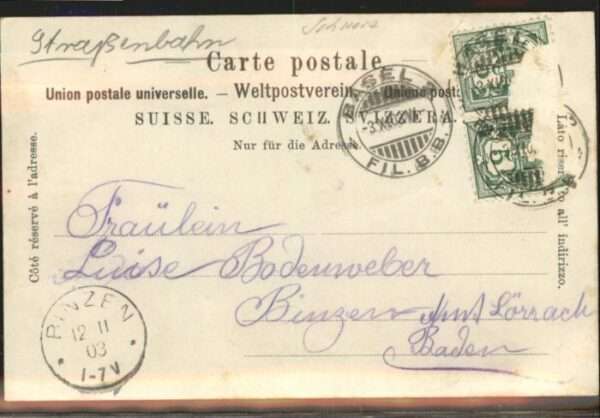 Straßenbahn
Schweiz
Carte postale.
Union postale universelle. — Weltpostverein. — Unione post
SUISSE. SCHWEIZ. SVIZZERA.
Nur für die Adresse.
BASEL
FIL. B.B.
5
5
Côté réservé à l'adresse.
Lato riser to all' indirizzo.
Fräulein
Luise Bodenweber
Binzen Amt Lörrach
Baden
BINZEN
12 11
03
1-7V